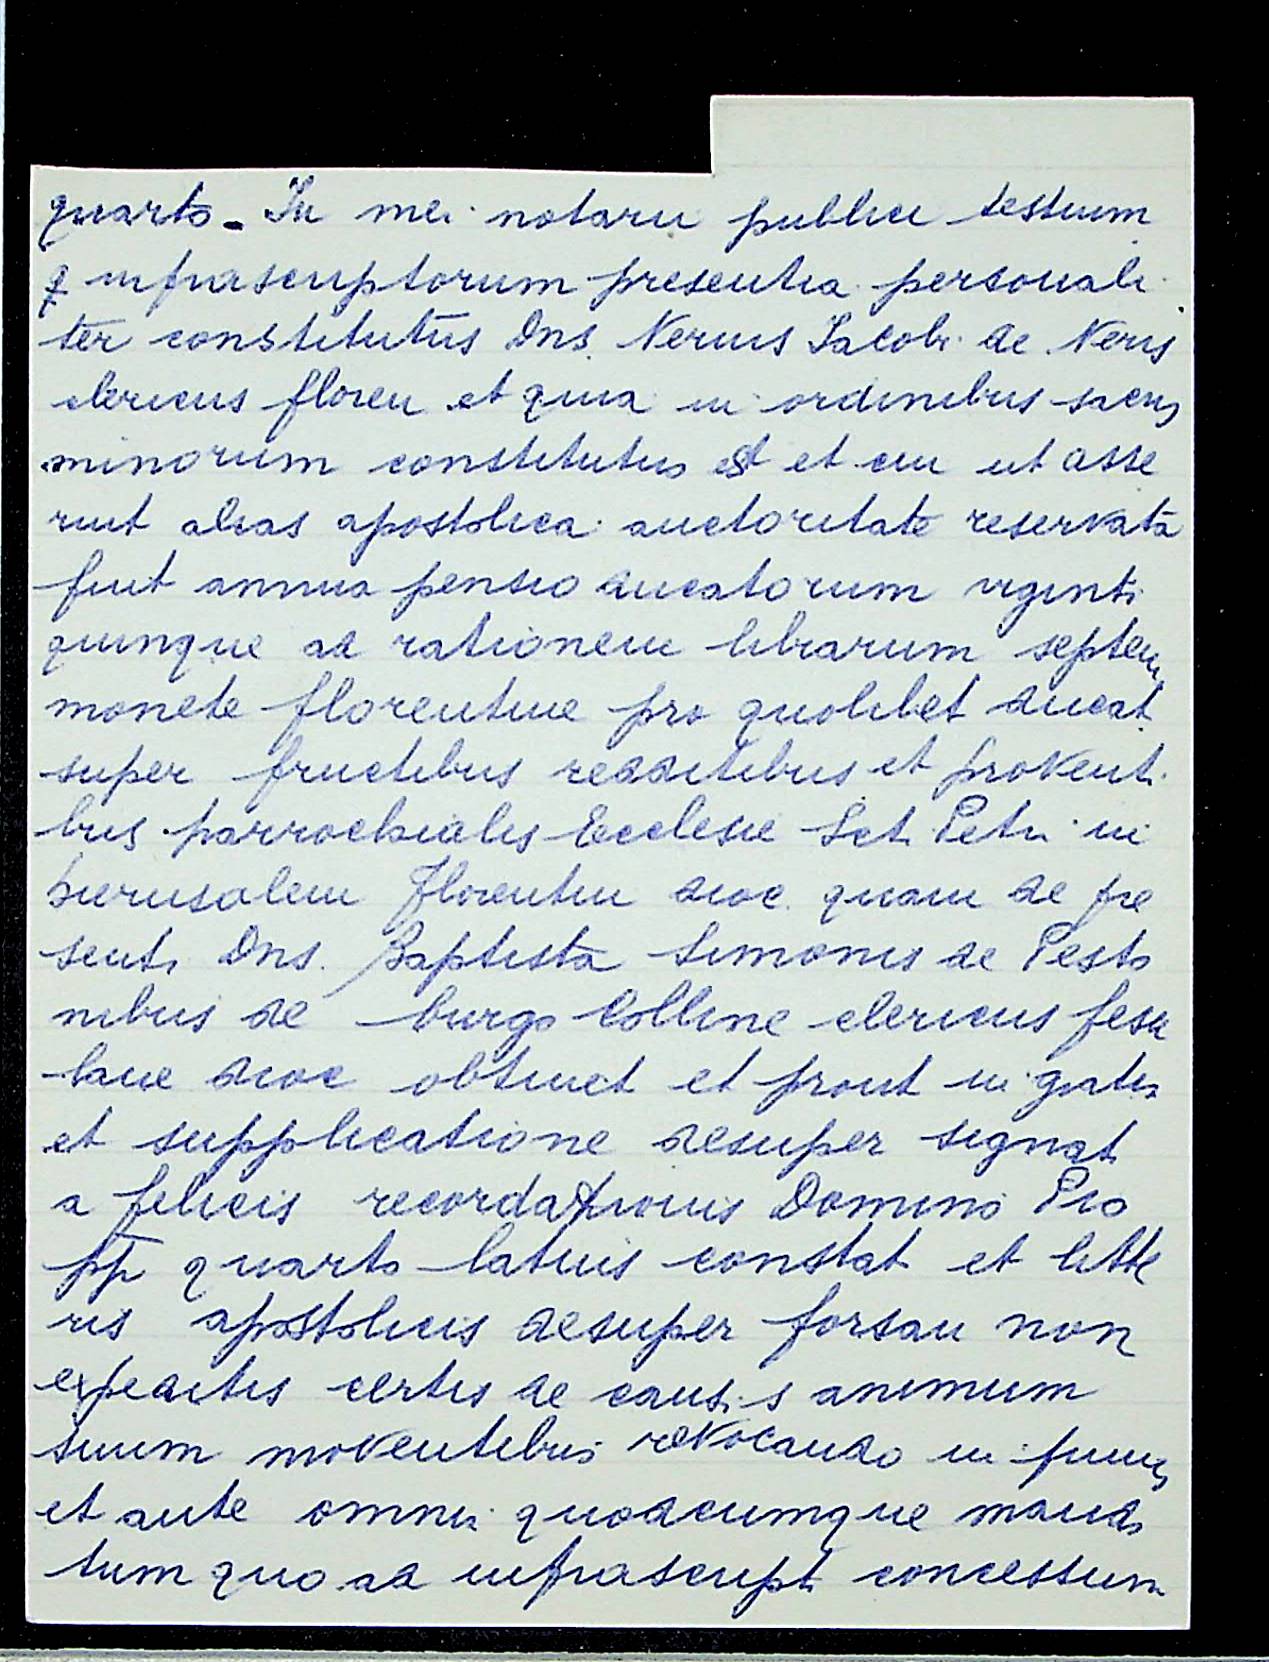 quarto - In mei notarii publici testium
q infrascriptorum presentia personali
ter constitutus Dns. Nerius Iacobi de Neris
clericus floren et quia in ordinibus sacris
minorum constitutus est et cui ut asse
ruit alias apostolica auctoritate reservata
fuit annua pensio ducatorum viginti
quinque ad rationem librarum septem
monete florentine pro quolibet ducat
super fructibus redditibus et provent
bus parrochialis Ecclesie Sct. Petri in
hierusalem florentin dioc. quam de pre
senti Dns. Baptista Simonis de Pesto
nibus de burgo Colline clericus fesu
lane dioc obtinet et prout in gratis
et supplicatione desuper signat
a felicis recordationis Domino Pio
pp quarto latius constat et litte
ris apostolicis desuper forsan non
expeditis certis de causis animum
suum moventibus revocando in primis
et ante omnia quodcumque manda
tum quo ad infrascript concessum